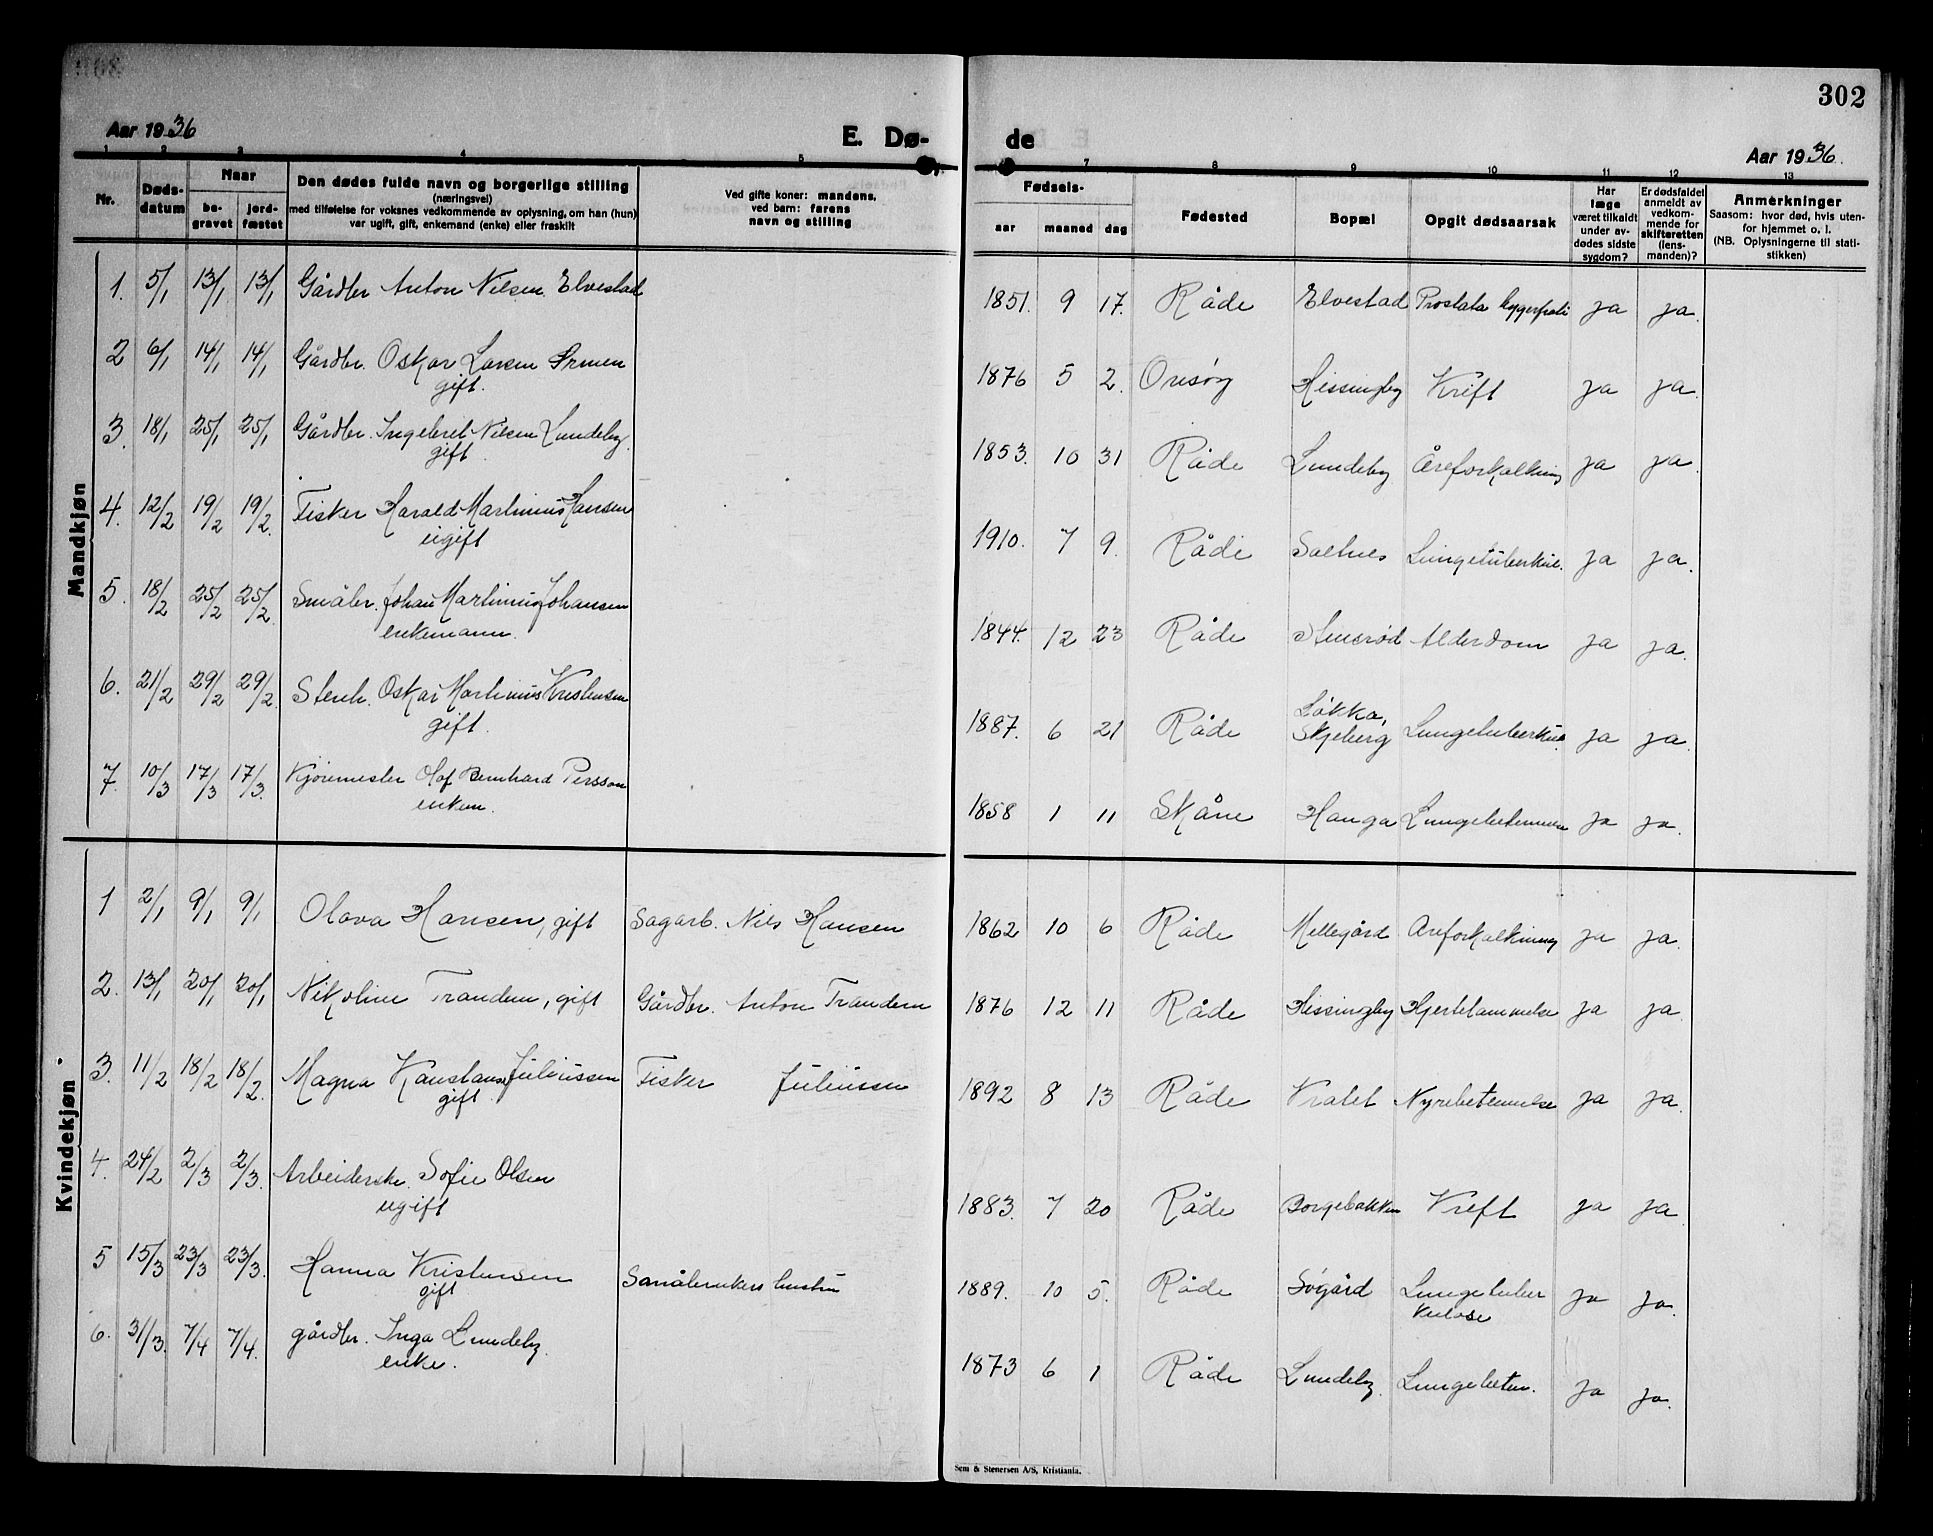 302
Aar 1936
E. Dø-
de
Aar 1936.
1 2 3 4 5 7 8 9 10 11 12 13
Nr.
Døds-
datum
Naar
be-
gravet
jord-
fæstet
Den dødes fulde navn og borgerlige stilling
(næringsvei)
med tilføielse for voksnes vedkommende av oplysning, om han (hun)
var ugift, gift, enkemand (enke) eller fraskilt
Ved gifte koner: mandens,
ved barn: farens
navn og stilling
Fødsels-
aar maaned dag
Fødested
Bopæl
Opgit dødsaarsak
Har
læge
været tilkaldt
under av-
dødes sidste
sygdom?
Er dødsfaldet
anmeldt av
vedkom-
mende for
skifteretten
(lens-
manden)?
Anmerkninger
Saasom: hvor død, hvis uten-
for hjemmet o. l.
(NB. Oplysningerne til stati-
stikken)
Mandkjøn
1. 5/1 13/1 13/1 Gårdbr Anton Nilsen Elvestad 1851. 9 17. Råde Elvestad Prostata ja ja.
2 6/1 14/1 14/1 Gårdbr. Oskar Larsen 1876 5 2. Onsøy Hissingby Kreft ja ja.
gift.
3. 18/1 25/1 25/1 Gårdbr. Ingebret Nilsen Lundeby 1853. 10 31 Råde Lundeby Åreforkalkning ja ja.
gift
4. 12/2 19/2 19/2. Fisker Harald Martinius Hansen 1910. 7 9. Råde Saltnes Lungetuberkul. ja ja.
ugift
5. 18/2 25/2 25/2. Småbr. Johan Martinius Johansen 1844. 12 23 Råde Stensrød Alderdom ja ja.
enkemann.
6. 21/2 29/2 29/2. Stenh. Oskar Martinius Kristensen 1887. 6 21 Råde Løkka, Skjeberg Lungetuberkul. ja ja.
gift.
7. 10/3 17/3 17/3. Kjøremester Olof Bernhard Persson 1858 1 11 Skåne Hauga Lungebetennelse ja ja.
enkem.
Kvindekjøn
1 2/1 9/1 9/1 Olava Hansen, gift Sagarb. Nils Hansen 1862 10 6 Råde Mellegård Areforkalkning ja ja.
2. 13/1 20/1 20/1 Nikoline Trandem, gift Gårdbr. Anton Trandem 1876 12 11 Råde Hissingby Hjertelammelse ja ja.
3. 11/2 18/2 18/2. Magna Konstanse Juliussen Fisker Juliussen 1892 8 13 Råde Kralet Nyrebetennelse ja ja.
gift
4. 24/2 2/3 2/3. Arbeiderske Sofie Olsen 1883. 7 20 Råde Borgebakken Kreft ja ja
ugift
5 15/3 23/3 23/3. Hanna Kristensen Småbrukers hustru 1889. 10 5. Råde Søgård Lungetuber ja ja.
gift kulose
6. 31/3. 7/4 7/4. gårdbr. Inga Lundeby. 1873 6 1 Råde Lundeby. Lungebeten. ja ja.
enke.
Sem & Stenersen A/S, Kristiania.